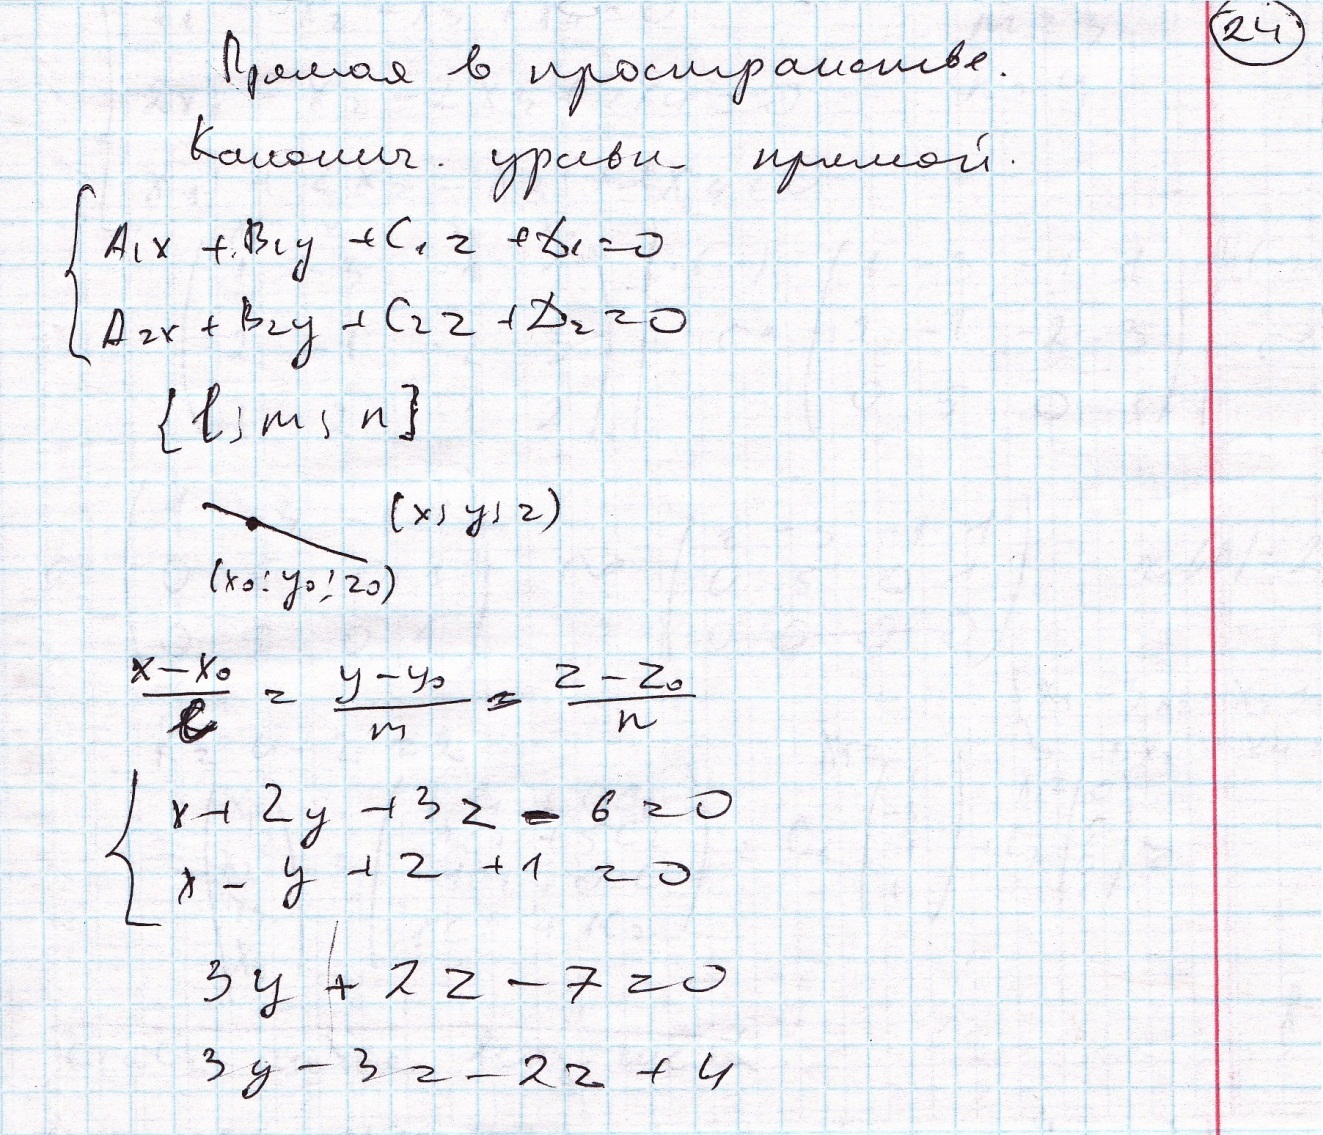 24
Прямая в пространстве.
Каконич. уравн прямой.
A₁x + B₁y + C₁z + D₁ = 0
A₂x + B₂y + C₂z + D₂ = 0
{l; m; n}
(x; y; z)
(x₀; y₀; z₀)
(x – x₀)/l = (y – y₀)/m = (z – z₀)/n
x + 2y + 3z – 6 = 0
x – y + z + 1 = 0
3y + 2z – 7 = 0
3y – 3 = – 2z + 4